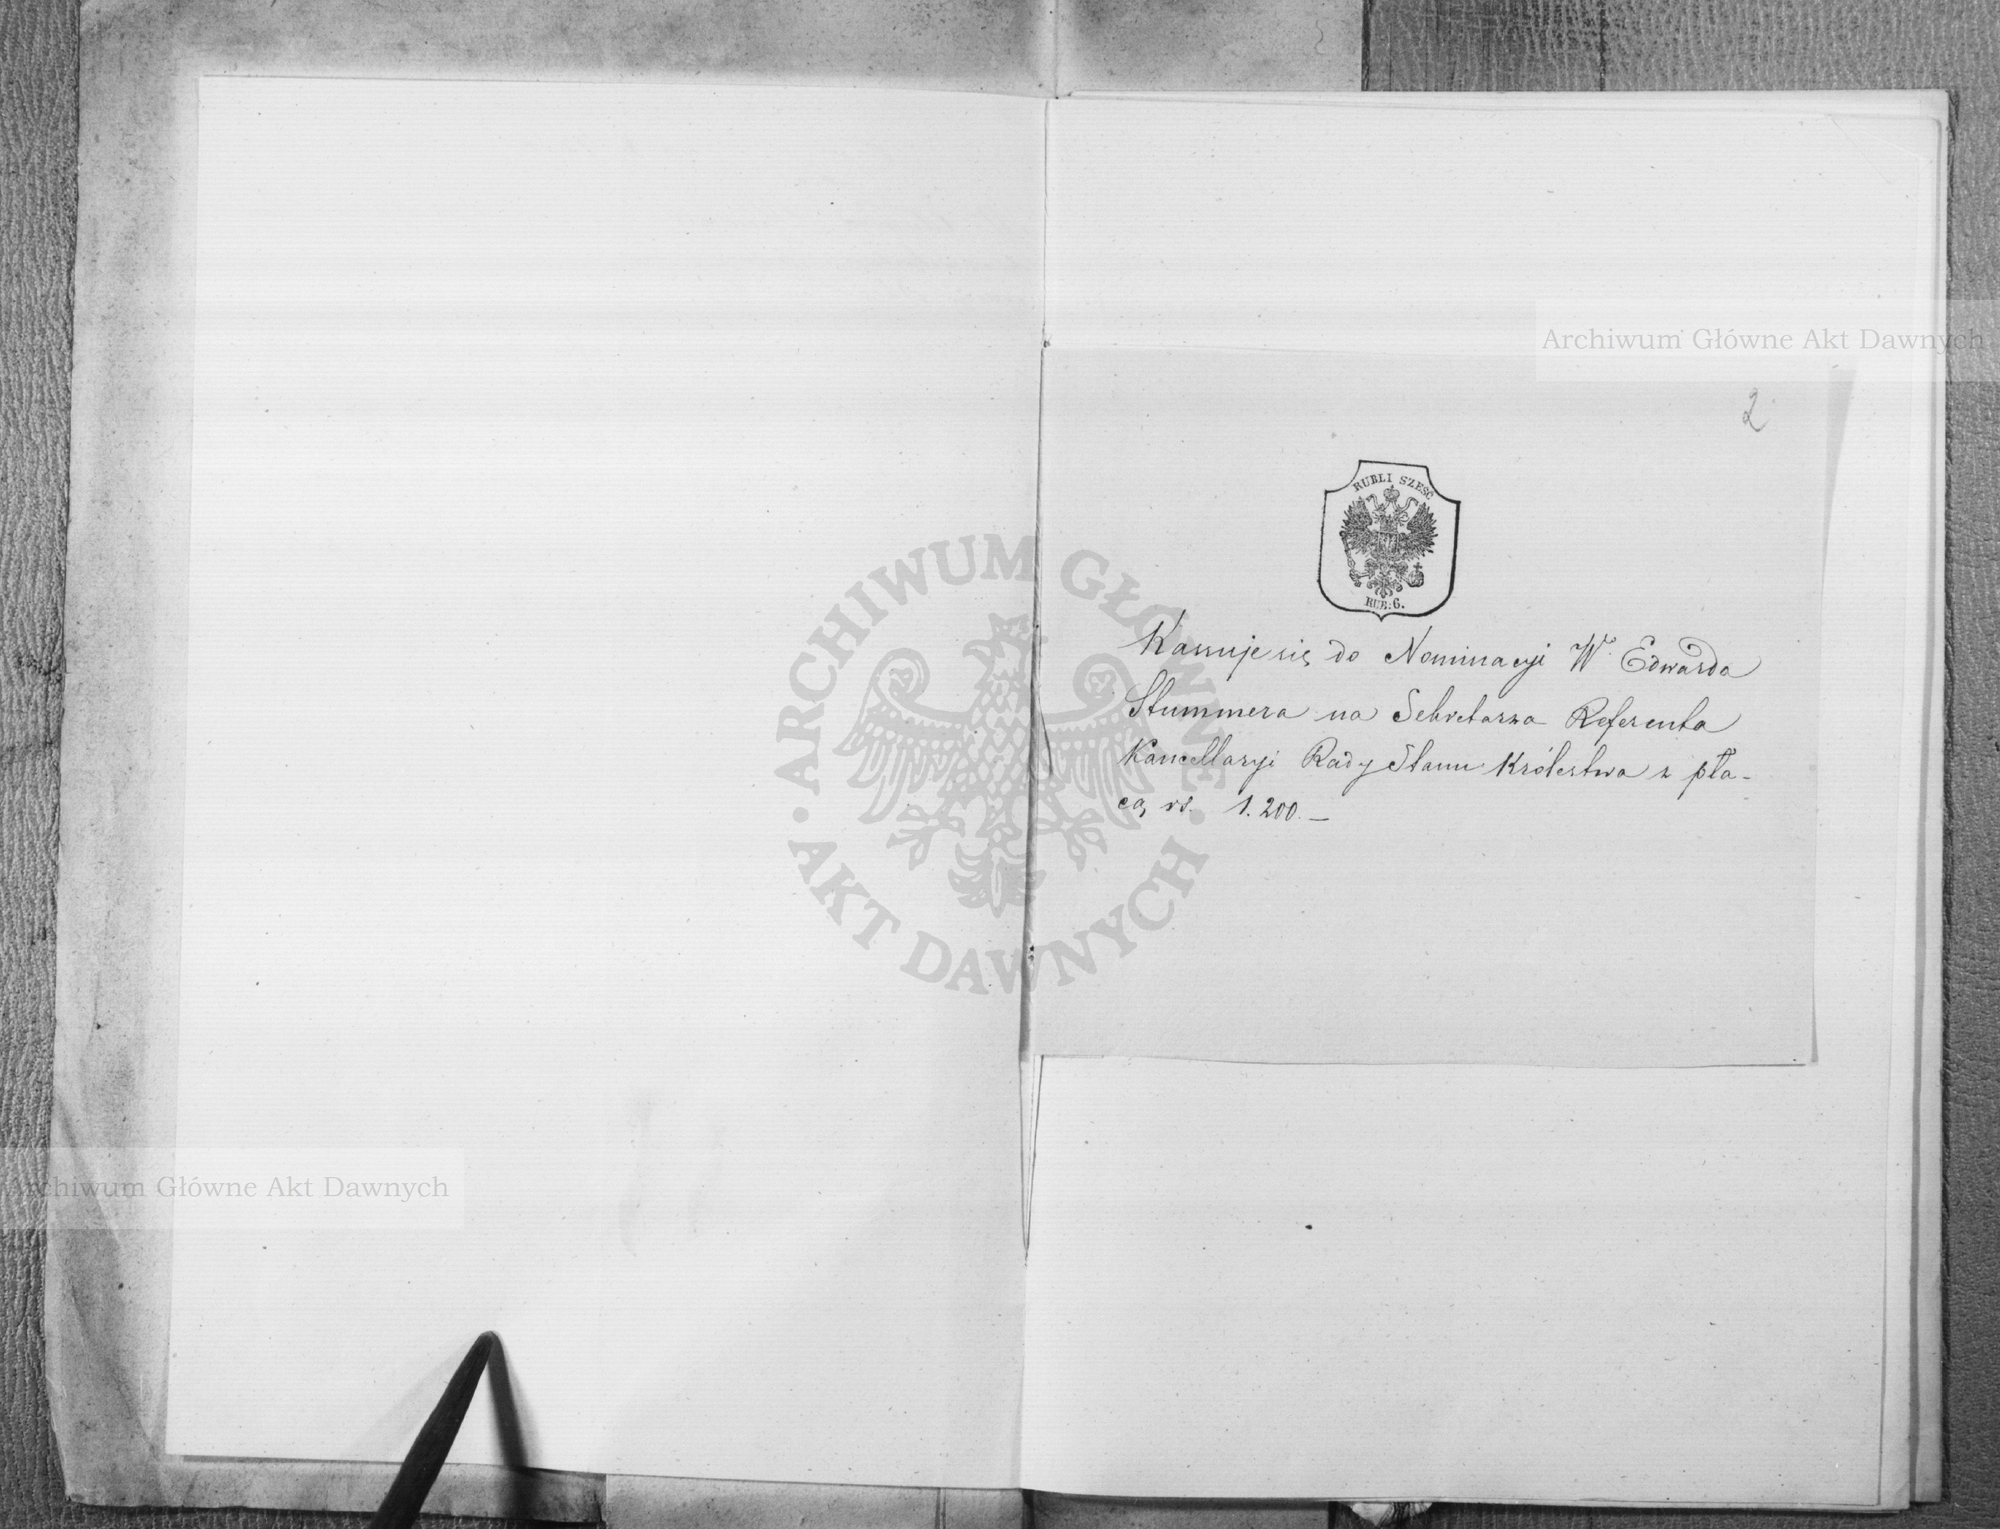 Archiwum Główne Akt Dawnych
2
RUBLI SZEŚĆ
RUB: 6.
Kassuje się do Nominacyi W. Edwarda
Stummera na Sekretarza Referenta
Kancellaryi Rady Stanu Królestwa z pła-
cą rs. 1.200.—
ARCHIWUM GŁÓWNE
AKT DAWNYCH
Archiwum Główne Akt Dawnych